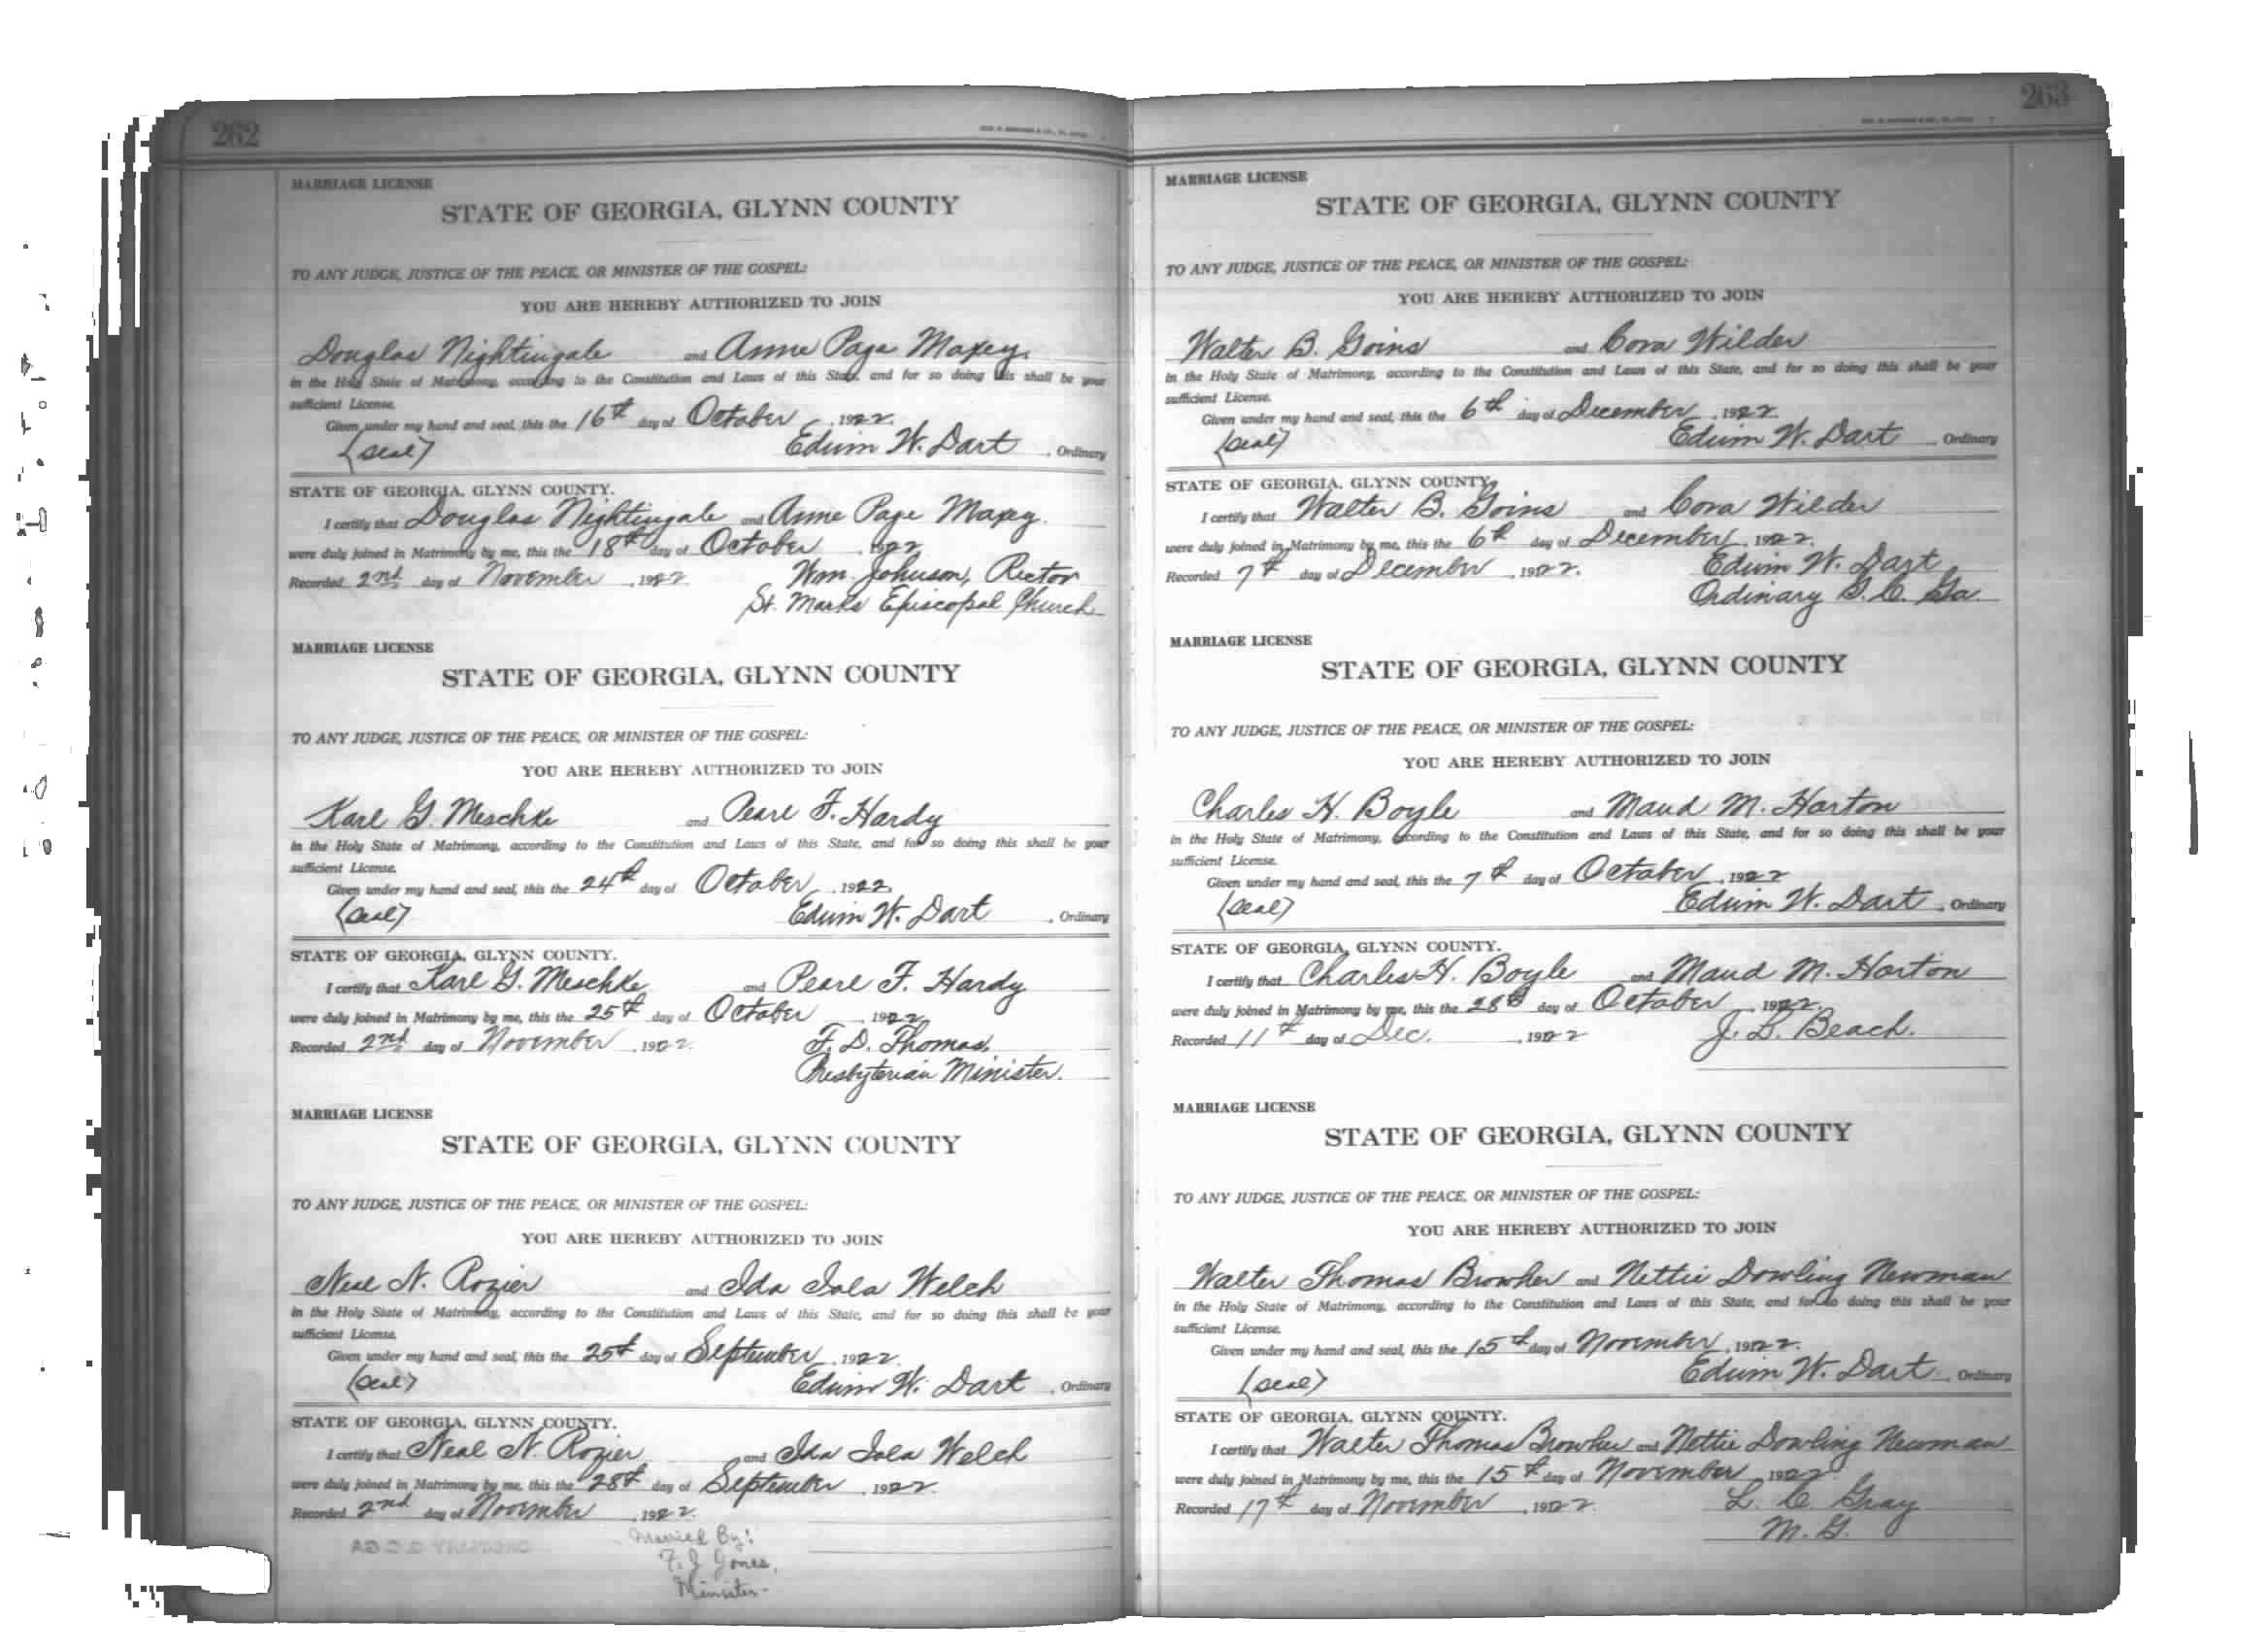 262
MARRIAGE LICENSE
STATE OF GEORGIA, GLYNN COUNTY
TO ANY JUDGE, JUSTICE OF THE PEACE, OR MINISTER OF THE GOSPEL:
YOU ARE HEREBY AUTHORIZED TO JOIN
Douglas Nightingale and Anne Page Maxey
in the Holy State of Matrimony, according to the Constitution and Laws of this State, and for so doing this shall be your
sufficient License.
Given under my hand and seal, this the 16th day of October, 1922.
(seal) Edwin W. Dart, Ordinary
STATE OF GEORGIA, GLYNN COUNTY.
I certify that Douglas Nightingale and Anne Page Maxey
were duly joined in Matrimony by me, this the 18th day of October, 1922
Recorded 2nd day of November, 1922. Wm. Johnson, Rector
St. Marks Episcopal Church
MARRIAGE LICENSE
STATE OF GEORGIA, GLYNN COUNTY
TO ANY JUDGE, JUSTICE OF THE PEACE, OR MINISTER OF THE GOSPEL:
YOU ARE HEREBY AUTHORIZED TO JOIN
Karl G. Meschke and Pearl F. Hardy
in the Holy State of Matrimony, according to the Constitution and Laws of this State, and for so doing this shall be your
sufficient License.
Given under my hand and seal, this the 24th day of October, 1922.
(seal) Edwin W. Dart, Ordinary
STATE OF GEORGIA, GLYNN COUNTY.
I certify that Karl G. Meschke and Pearl F. Hardy
were duly joined in Matrimony by me, this the 25th day of October, 1922
Recorded 2nd day of November, 1922. F. D. Thomas,
Presbyterian Minister.
MARRIAGE LICENSE
STATE OF GEORGIA, GLYNN COUNTY
TO ANY JUDGE, JUSTICE OF THE PEACE, OR MINISTER OF THE GOSPEL:
YOU ARE HEREBY AUTHORIZED TO JOIN
Neal N. Rozier and Ida Iola Welch
in the Holy State of Matrimony, according to the Constitution and Laws of this State, and for so doing this shall be your
sufficient License.
Given under my hand and seal, this the 25th day of September, 1922.
(seal) Edwin W. Dart, Ordinary
STATE OF GEORGIA, GLYNN COUNTY.
I certify that Neal N. Rozier and Ida Iola Welch
were duly joined in Matrimony by me, this the 28th day of September, 1922.
Recorded 2nd day of November, 1922.
Married By:
F. J. Jones,
Minister-
263
MARRIAGE LICENSE
STATE OF GEORGIA, GLYNN COUNTY
TO ANY JUDGE, JUSTICE OF THE PEACE, OR MINISTER OF THE GOSPEL:
YOU ARE HEREBY AUTHORIZED TO JOIN
Walter B. Goins and Cora Wilder
in the Holy State of Matrimony, according to the Constitution and Laws of this State, and for so doing this shall be your
sufficient License.
Given under my hand and seal, this the 6th day of December, 1922.
(seal) Edwin W. Dart, Ordinary
STATE OF GEORGIA, GLYNN COUNTY.
I certify that Walter B. Goins and Cora Wilder
were duly joined in Matrimony by me, this the 6th day of December, 1922.
Recorded 7th day of December, 1922. Edwin W. Dart
Ordinary G. C. Ga.
MARRIAGE LICENSE
STATE OF GEORGIA, GLYNN COUNTY
TO ANY JUDGE, JUSTICE OF THE PEACE, OR MINISTER OF THE GOSPEL:
YOU ARE HEREBY AUTHORIZED TO JOIN
Charles H. Boyle and Maud M. Horton
in the Holy State of Matrimony, according to the Constitution and Laws of this State, and for so doing this shall be your
sufficient License.
Given under my hand and seal, this the 7th day of October, 1922
(seal) Edwin W. Dart, Ordinary
STATE OF GEORGIA, GLYNN COUNTY.
I certify that Charles H. Boyle and Maud M. Horton
were duly joined in Matrimony by me, this the 28th day of October, 1922.
Recorded 11th day of Dec., 1922 J. L. Beach.
MARRIAGE LICENSE
STATE OF GEORGIA, GLYNN COUNTY
TO ANY JUDGE, JUSTICE OF THE PEACE, OR MINISTER OF THE GOSPEL:
YOU ARE HEREBY AUTHORIZED TO JOIN
Walter Thomas Browher and Nettie Dowling Newman
in the Holy State of Matrimony, according to the Constitution and Laws of this State, and for so doing this shall be your
sufficient License.
Given under my hand and seal, this the 15th day of November, 1922.
(seal) Edwin W. Dart, Ordinary
STATE OF GEORGIA, GLYNN COUNTY.
I certify that Walter Thomas Browher and Nettie Dowling Newman
were duly joined in Matrimony by me, this the 15th day of November, 1922
Recorded 17th day of November, 1922 L. C. Gray
M. G.